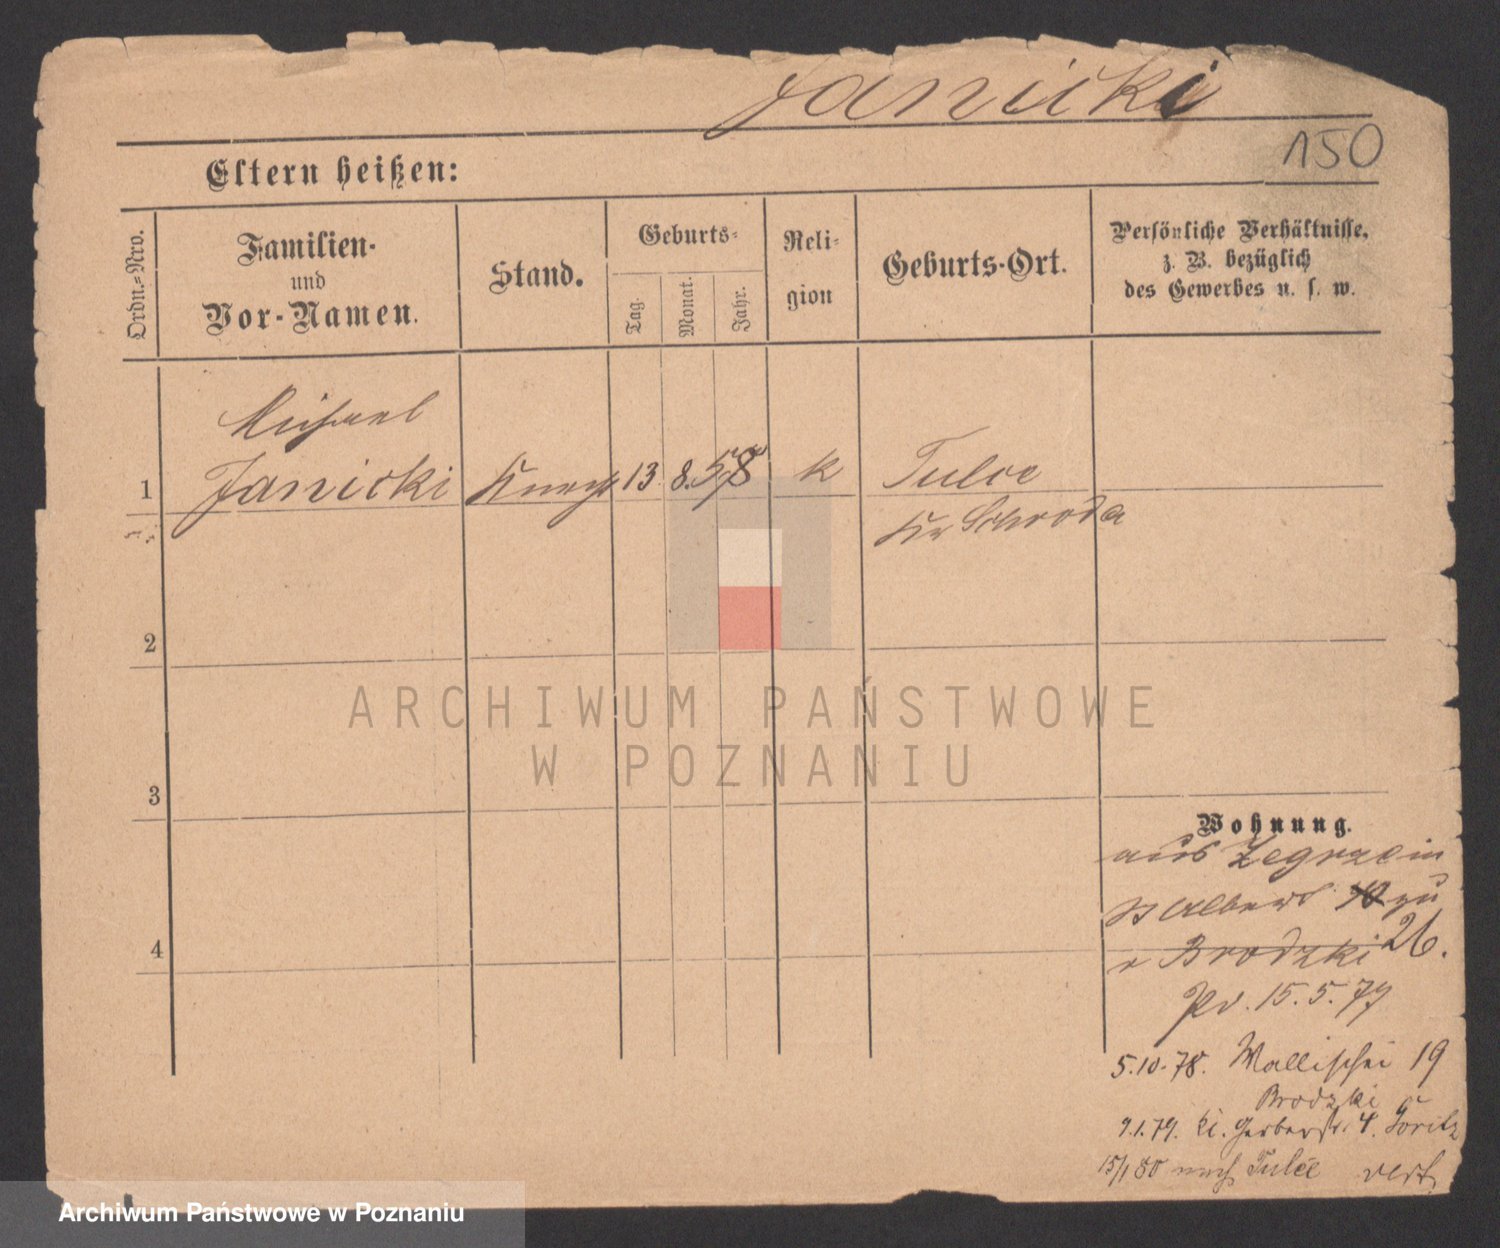 Janicki
150
Eltern heißen:
Ordn.-Nro.
Familien-
und
Vor-Namen.
Stand.
Geburts-
Tag.
Monat.
Jahr.
Reli-
gion
Geburts-Ort.
Persönliche Verhältnisse,
z. B. bezüglich
des Gewerbes u. s. w.
Michael
1 Janicki Knecht 13 8. 58 k Tulce
Kr Schroda
2
ARCHIWUM PAŃSTWOWE
W POZNANIU
3
Wohnung.
aus Zegrze in
St Albert 40 zu
26.
v Brodzki
Pr. 15.5.77
4
5.10.78. Wallischei 19
Brodzki
9.1.79. Kl. Gerberstr. 4. Göritz
15/1 80 nach Tulce
Archiwum Państwowe w Poznaniu